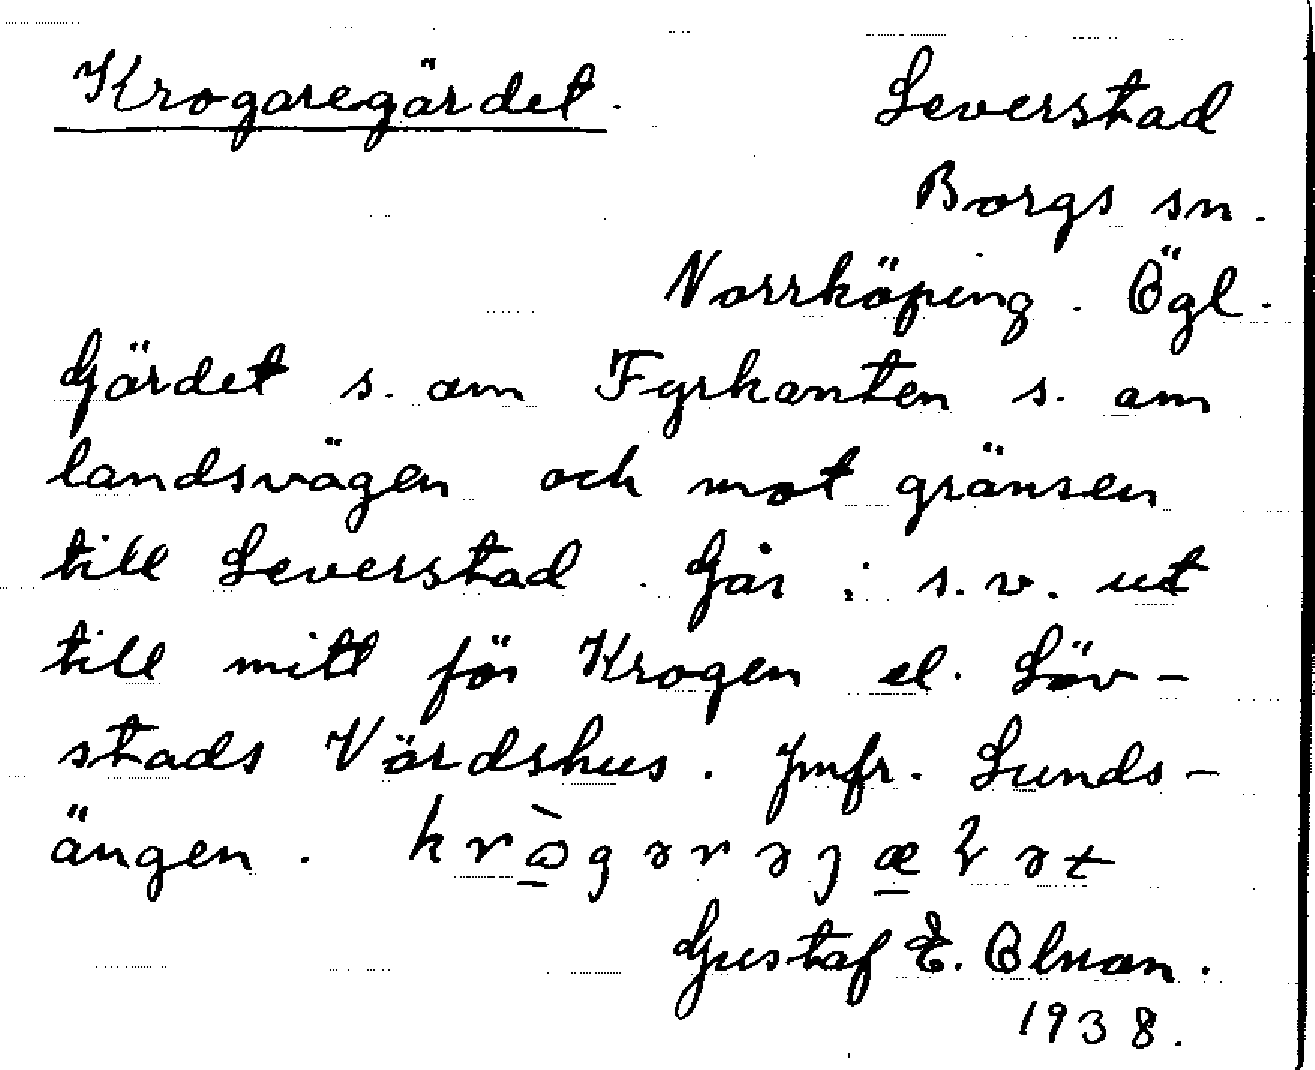 Krogaregärdet.
Leverstad
Borgs sn.
Norrköping. Ögl.
Gärdet s. om Fyrkanten s. om
landsvägen och mot gränsen
till Leverstad. Går i s.v. ut
till mitt för Krogen el. Löv-
stads Värdshus. Jmfr. Lunds-
ängen.
Gustaf E. Olson.
1938.